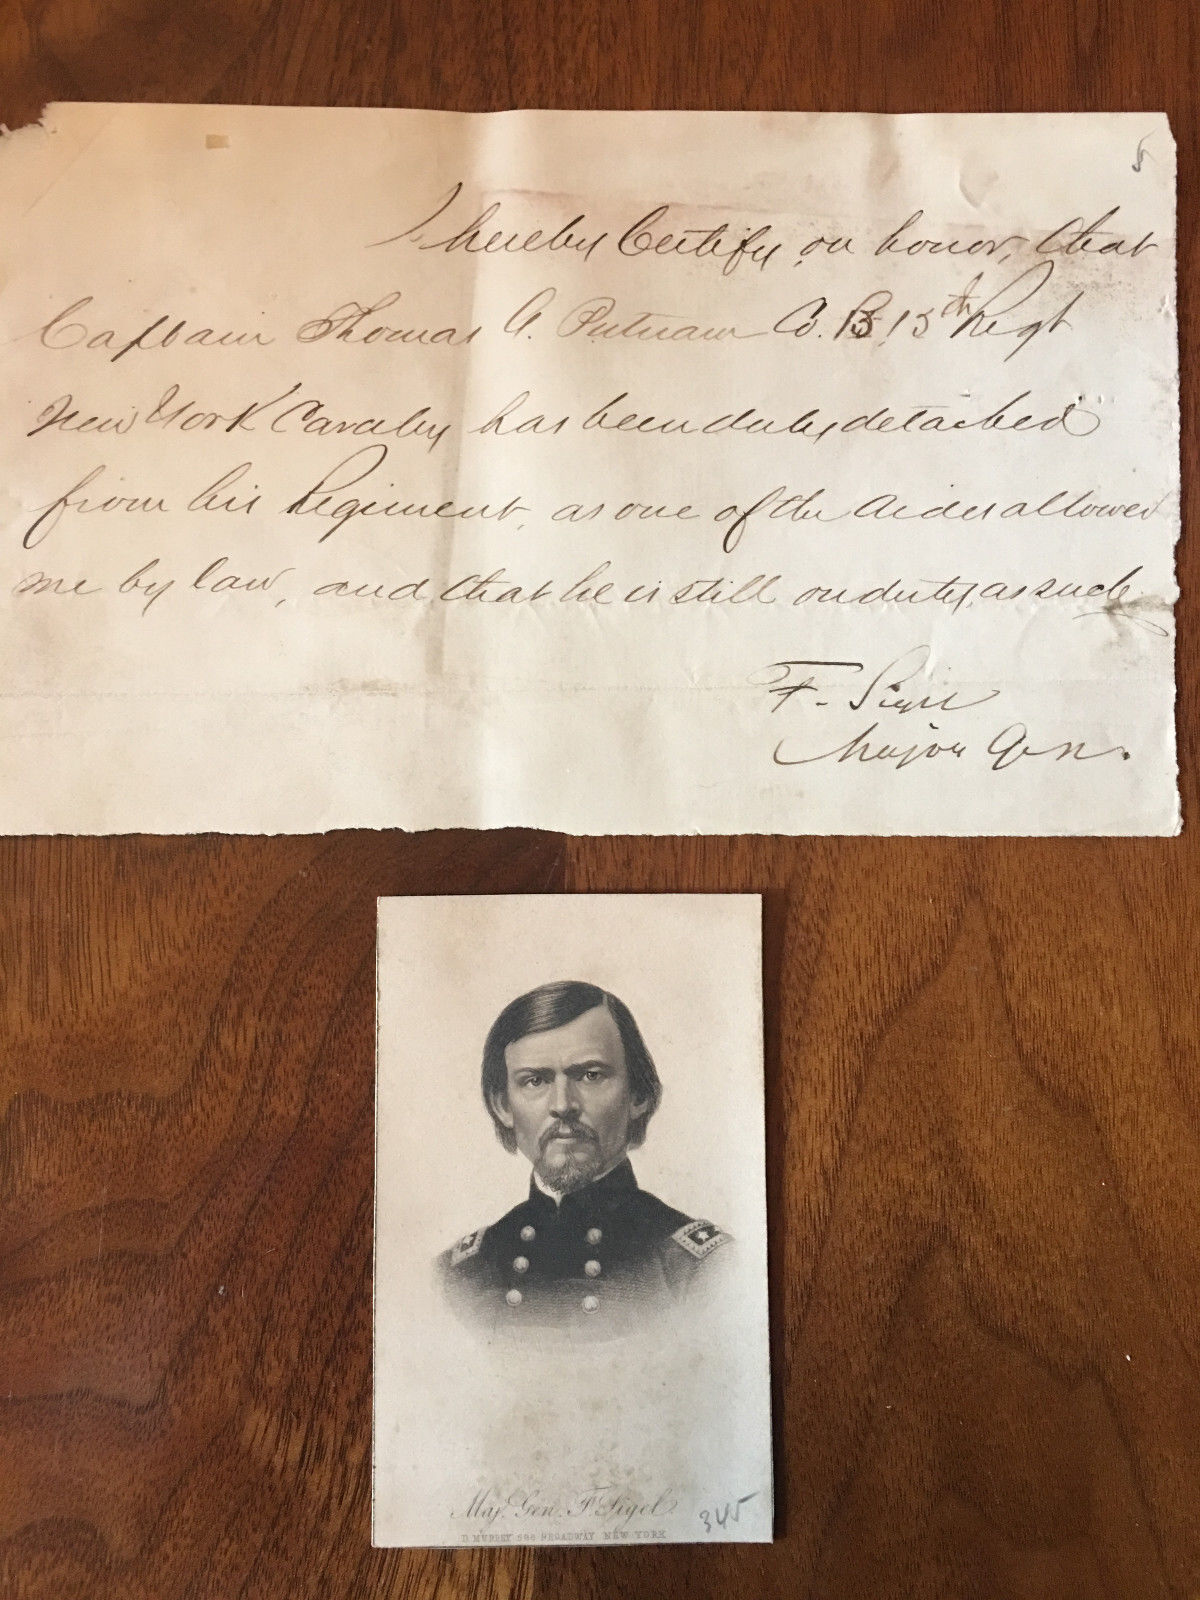 5
I hereby Certify, on honor, that
Captain Thomas G. Putnam Co. B. 15th Regt
New York Cavalry has been duly detached
from his Regiment, as one of the Aides allowed
me by law, and that he is still on duty, as such.
F. Sigel
Major Gen.
Maj. Gen. F. Sigel
345
BROADWAY NEW YORK